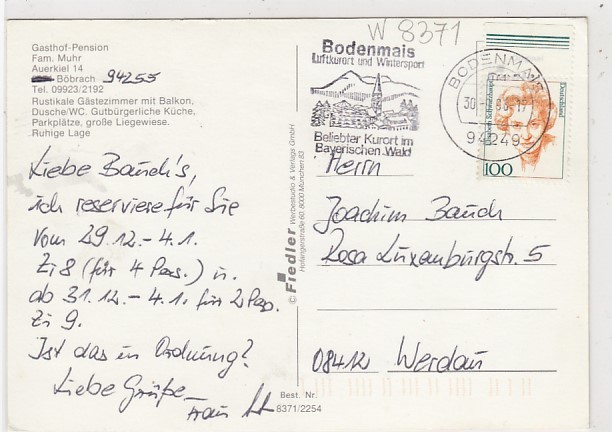 W 8371
Gasthof-Pension
Fam. Muhr
Auerkiel 14
Böbrach 94255
Tel. 09923/2192
Rustikale Gästezimmer mit Balkon,
Dusche/WC. Gutbürgerliche Küche,
Parkplätze, große Liegewiese.
Ruhige Lage
Liebe Bauch's,
ich reserviere für Sie
vom 29.12.-4.1.
Zi 8 (für 4 Pers.) u.
ab 31.12.-4.1. für 2 Pers.
Zi 9.
Ist das in Ordnung?
Liebe Grüße
Frau
© Fiedler Werbestudio & Verlags GmbH
Hofangerstraße 80, 8000 München 83
Best. Nr.
8371/2254
Bodenmais
Luftkurort und Wintersport
Beliebter Kurort im
Bayerischen Wald
BODENMAIS
94249
Deutschland
100
Herrn
Joachim Bauch
Rosa Luxemburgstr. 5
08412 Werdau